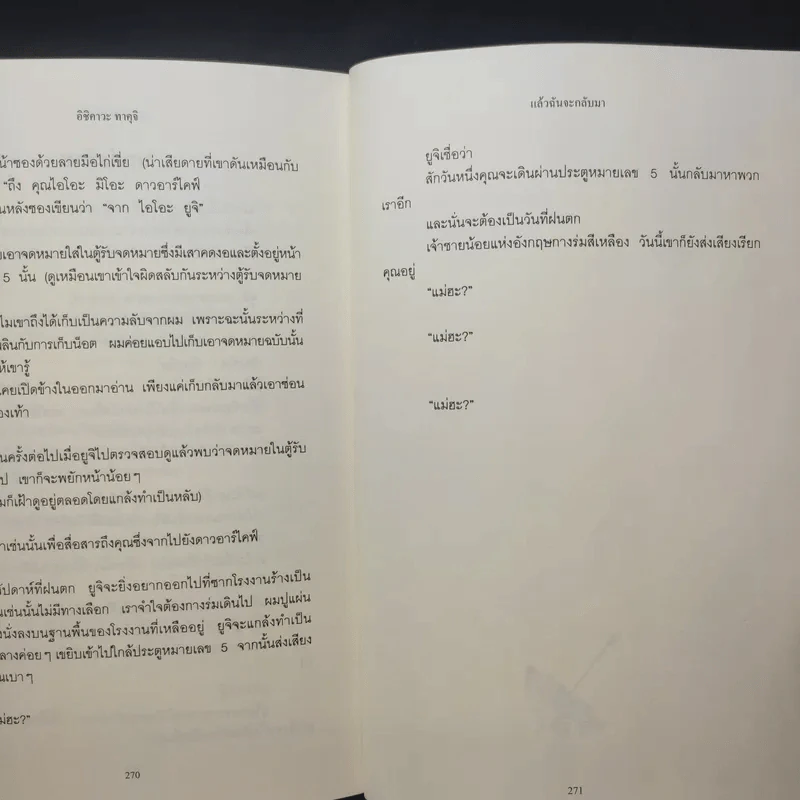 อิชิคาวะ ทาคุจิ
น้าซองด้วยลายมือไก่เขี่ย (น่าเสียดายที่เขาดันเหมือนกับ
“ถึง คุณไอโอะ มิโอะ ดาวอาร์ไคฟ์
นหลังซองเขียนว่า “จาก ไอโอะ ยูจิ”
เอาจดหมายใส่ในตู้รับจดหมายซึ่งมีเสาคดงอและตั้งอยู่หน้า
5 นั้น (ดูเหมือนเขาเข้าใจผิดสลับกันระหว่างตู้รับจดหมาย
ไมเขาถึงได้เก็บเป็นความลับจากผม เพราะฉะนั้นระหว่างที่
ลินกับการเก็บน็อต ผมค่อยแอบไปเก็บเอาจดหมายฉบับนั้น
ห้เขารู้
เคยเปิดข้างในออกมาอ่าน เพียงแค่เก็บกลับมาแล้วเอาซ่อน
องเท้า
นครั้งต่อไปเมื่อยูจิไปตรวจสอบดูแล้วพบว่าจดหมายในตู้รับ
ป เขาก็จะพยักหน้าน้อยๆ
มก็เฝ้าดูอยู่ตลอดโดยแกล้งทำเป็นหลับ)
าเช่นนั้นเพื่อสื่อสารถึงคุณซึ่งจากไปยังดาวอาร์ไคฟ์
ัปดาห์ที่ฝนตก ยูจิจะยิ่งอยากออกไปที่ซากโรงงานร้างเป็น
นเช่นนั้นไม่มีทางเลือก เราจำใจต้องกางร่มเดินไป ผมปูแผ่น
งนั่งลงบนฐานพื้นของโรงงานที่เหลืออยู่ ยูจิจะแกล้งทำเป็น
ลางค่อยๆ เขยิบเข้าไปใกล้ประตูหมายเลข 5 จากนั้นส่งเสียง
นเบาๆ
ม่ฮะ?”
270
แล้วฉันจะกลับมา
ยูจิเชื่อว่า
สักวันหนึ่งคุณจะเดินผ่านประตูหมายเลข 5 นั้นกลับมาหาพวก
เราอีก
และนั่นจะต้องเป็นวันที่ฝนตก
เจ้าชายน้อยแห่งอังกฤษกางร่มสีเหลือง วันนี้เขาก็ยังส่งเสียงเรียก
คุณอยู่
“แม่ฮะ?”
“แม่ฮะ?”
“แม่ฮะ?”
271